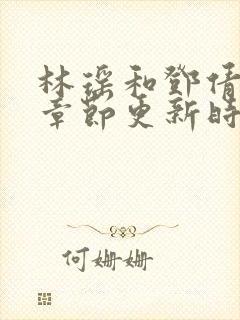 林瑶和邓倩
章节更新时
何姗姗